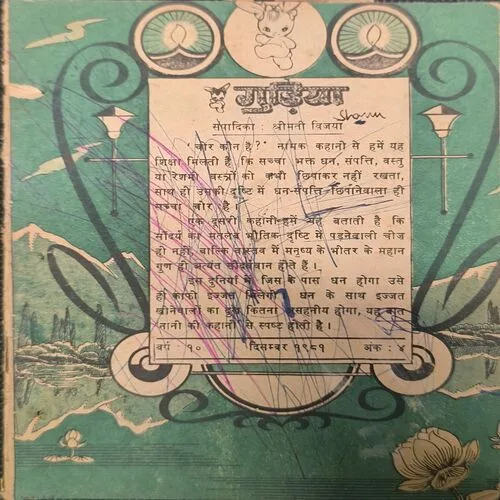 गुड़िया
Sharu
संपादिका : श्रीमती विजया
'चोर कौन है?' नामक कहानी से हमें यह
शिक्षा मिलती है कि सच्चा भक्त धन, संपत्ति, वस्तु
या रेशमी वस्त्रों को कभी छिपाकर नहीं रखता,
साथ ही उसकी दृष्टि में धन-संपत्ति छिपानेवाला ही
सच्चा चोर है।
एक दूसरी कहानी हमें यह बताती है कि
सौंदर्य का मतलब भौतिक दृष्टि में पड़नेवाली चीज
ही नहीं, बल्कि वास्तव में मनुष्य के भीतर के महान
गुण ही अत्यंत सौंदर्यवान होते हैं।
इस दुनिया में जिस के पास धन होगा उसे
ही काफी इज्जत मिलेगी। धन के साथ इज्जत
खोनेवालों का दुख कितना असहनीय होगा, यह बात
नानी की कहानी से स्पष्ट होती है।
वर्ष : १० दिसम्बर १९८१ अंक : ४